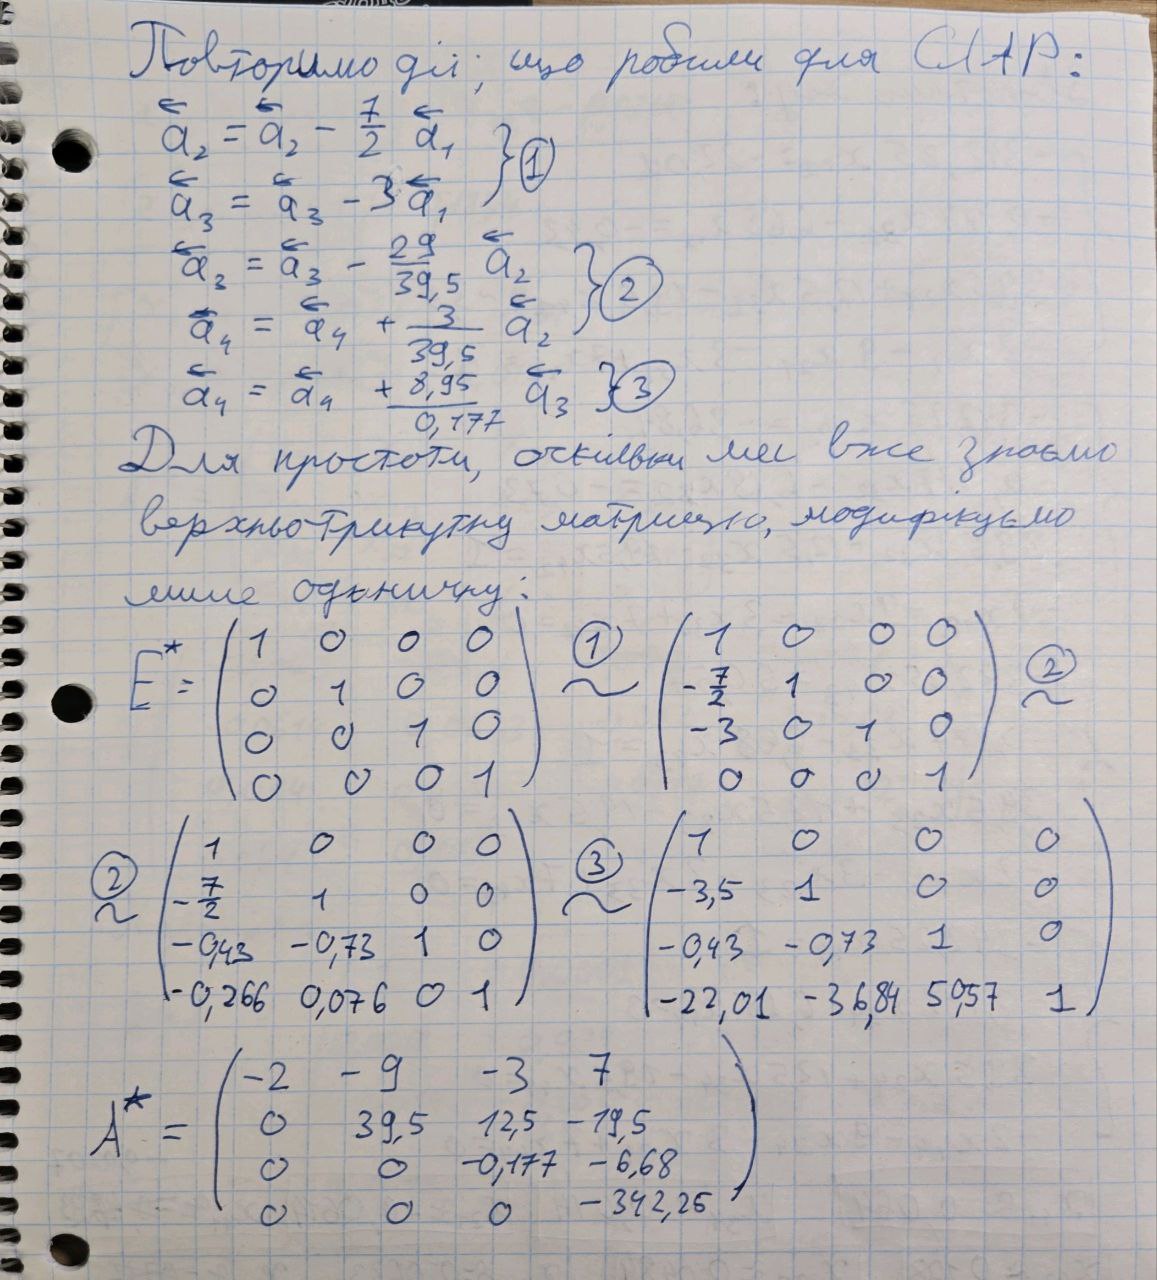 Повторимо дії, що робили для СЛАР:
a⃖₂ = a⃖₂ - 7/2 a⃖₁
a⃖₃ = a⃖₃ - 3a⃖₁ } ①
a⃖₃ = a⃖₃ - 29/39,5 a⃖₂
a⃖₄ = a⃖₄ + 3/39,5 a⃖₂ } ②
a⃖₄ = a⃖₄ + 8,95/0,177 a⃖₃ } ③
Для простоти, оскільки ми вже знаємо
верхньо-трикутну матрицю, модифікуємо
лише одиничну:
E* = ( 1 0 0 0 ) ① ~ ( 1 0 0 0 ) ② ~
( 0 1 0 0 ) ( -7/2 1 0 0 )
( 0 0 1 0 ) ( -3 0 1 0 )
( 0 0 0 1 ) ( 0 0 0 1 )
② ~ ( 1 0 0 0 ) ③ ~ ( 1 0 0 0 )
( -7/2 1 0 0 ) ( -3,5 1 0 0 )
( -0,43 -0,73 1 0 ) ( -0,43 -0,73 1 0 )
( -0,266 0,076 0 1 ) ( -22,01 -36,84 50,57 1 )
A* = ( -2 -9 -3 7 )
( 0 39,5 12,5 -19,5 )
( 0 0 -0,177 -6,68 )
( 0 0 0 -342,25 )